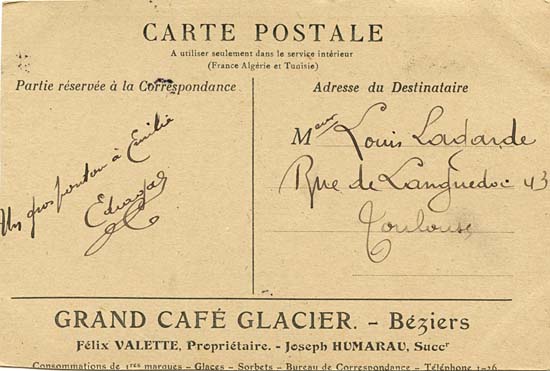 CARTE POSTALE
A utiliser seulement dans le service intérieur
(France Algérie et Tunisie)
Partie réservée à la Correspondance
Adresse du Destinataire
Un gros ponton à Emilie
Mʳ Louis Lagarde
Rue de Languedoc 43
Toulouse
GRAND CAFÉ GLACIER. - Béziers
Félix VALETTE, Propriétaire. - Joseph HUMARAU, Succʳ
Consommations de 1ʳᵉˢ marques - Glaces - Sorbets - Bureau de Correspondance - Téléphone 1-26